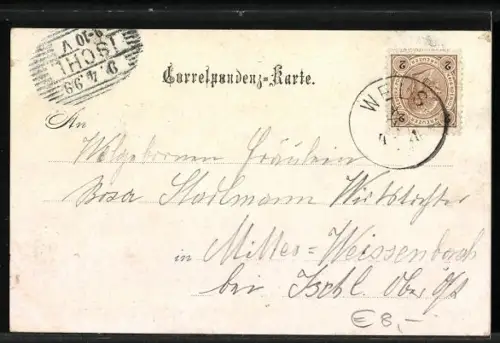 ISCHL
9.4.99
8-10 V
Correspondenz-Karte.
WELS
2 2
2 2
An
Wolgebornen Fräulein
Rosa Stadlmann Wirtstochter
in Mitter=Weissenbach
bei Ischl Ober Öst
€8,-